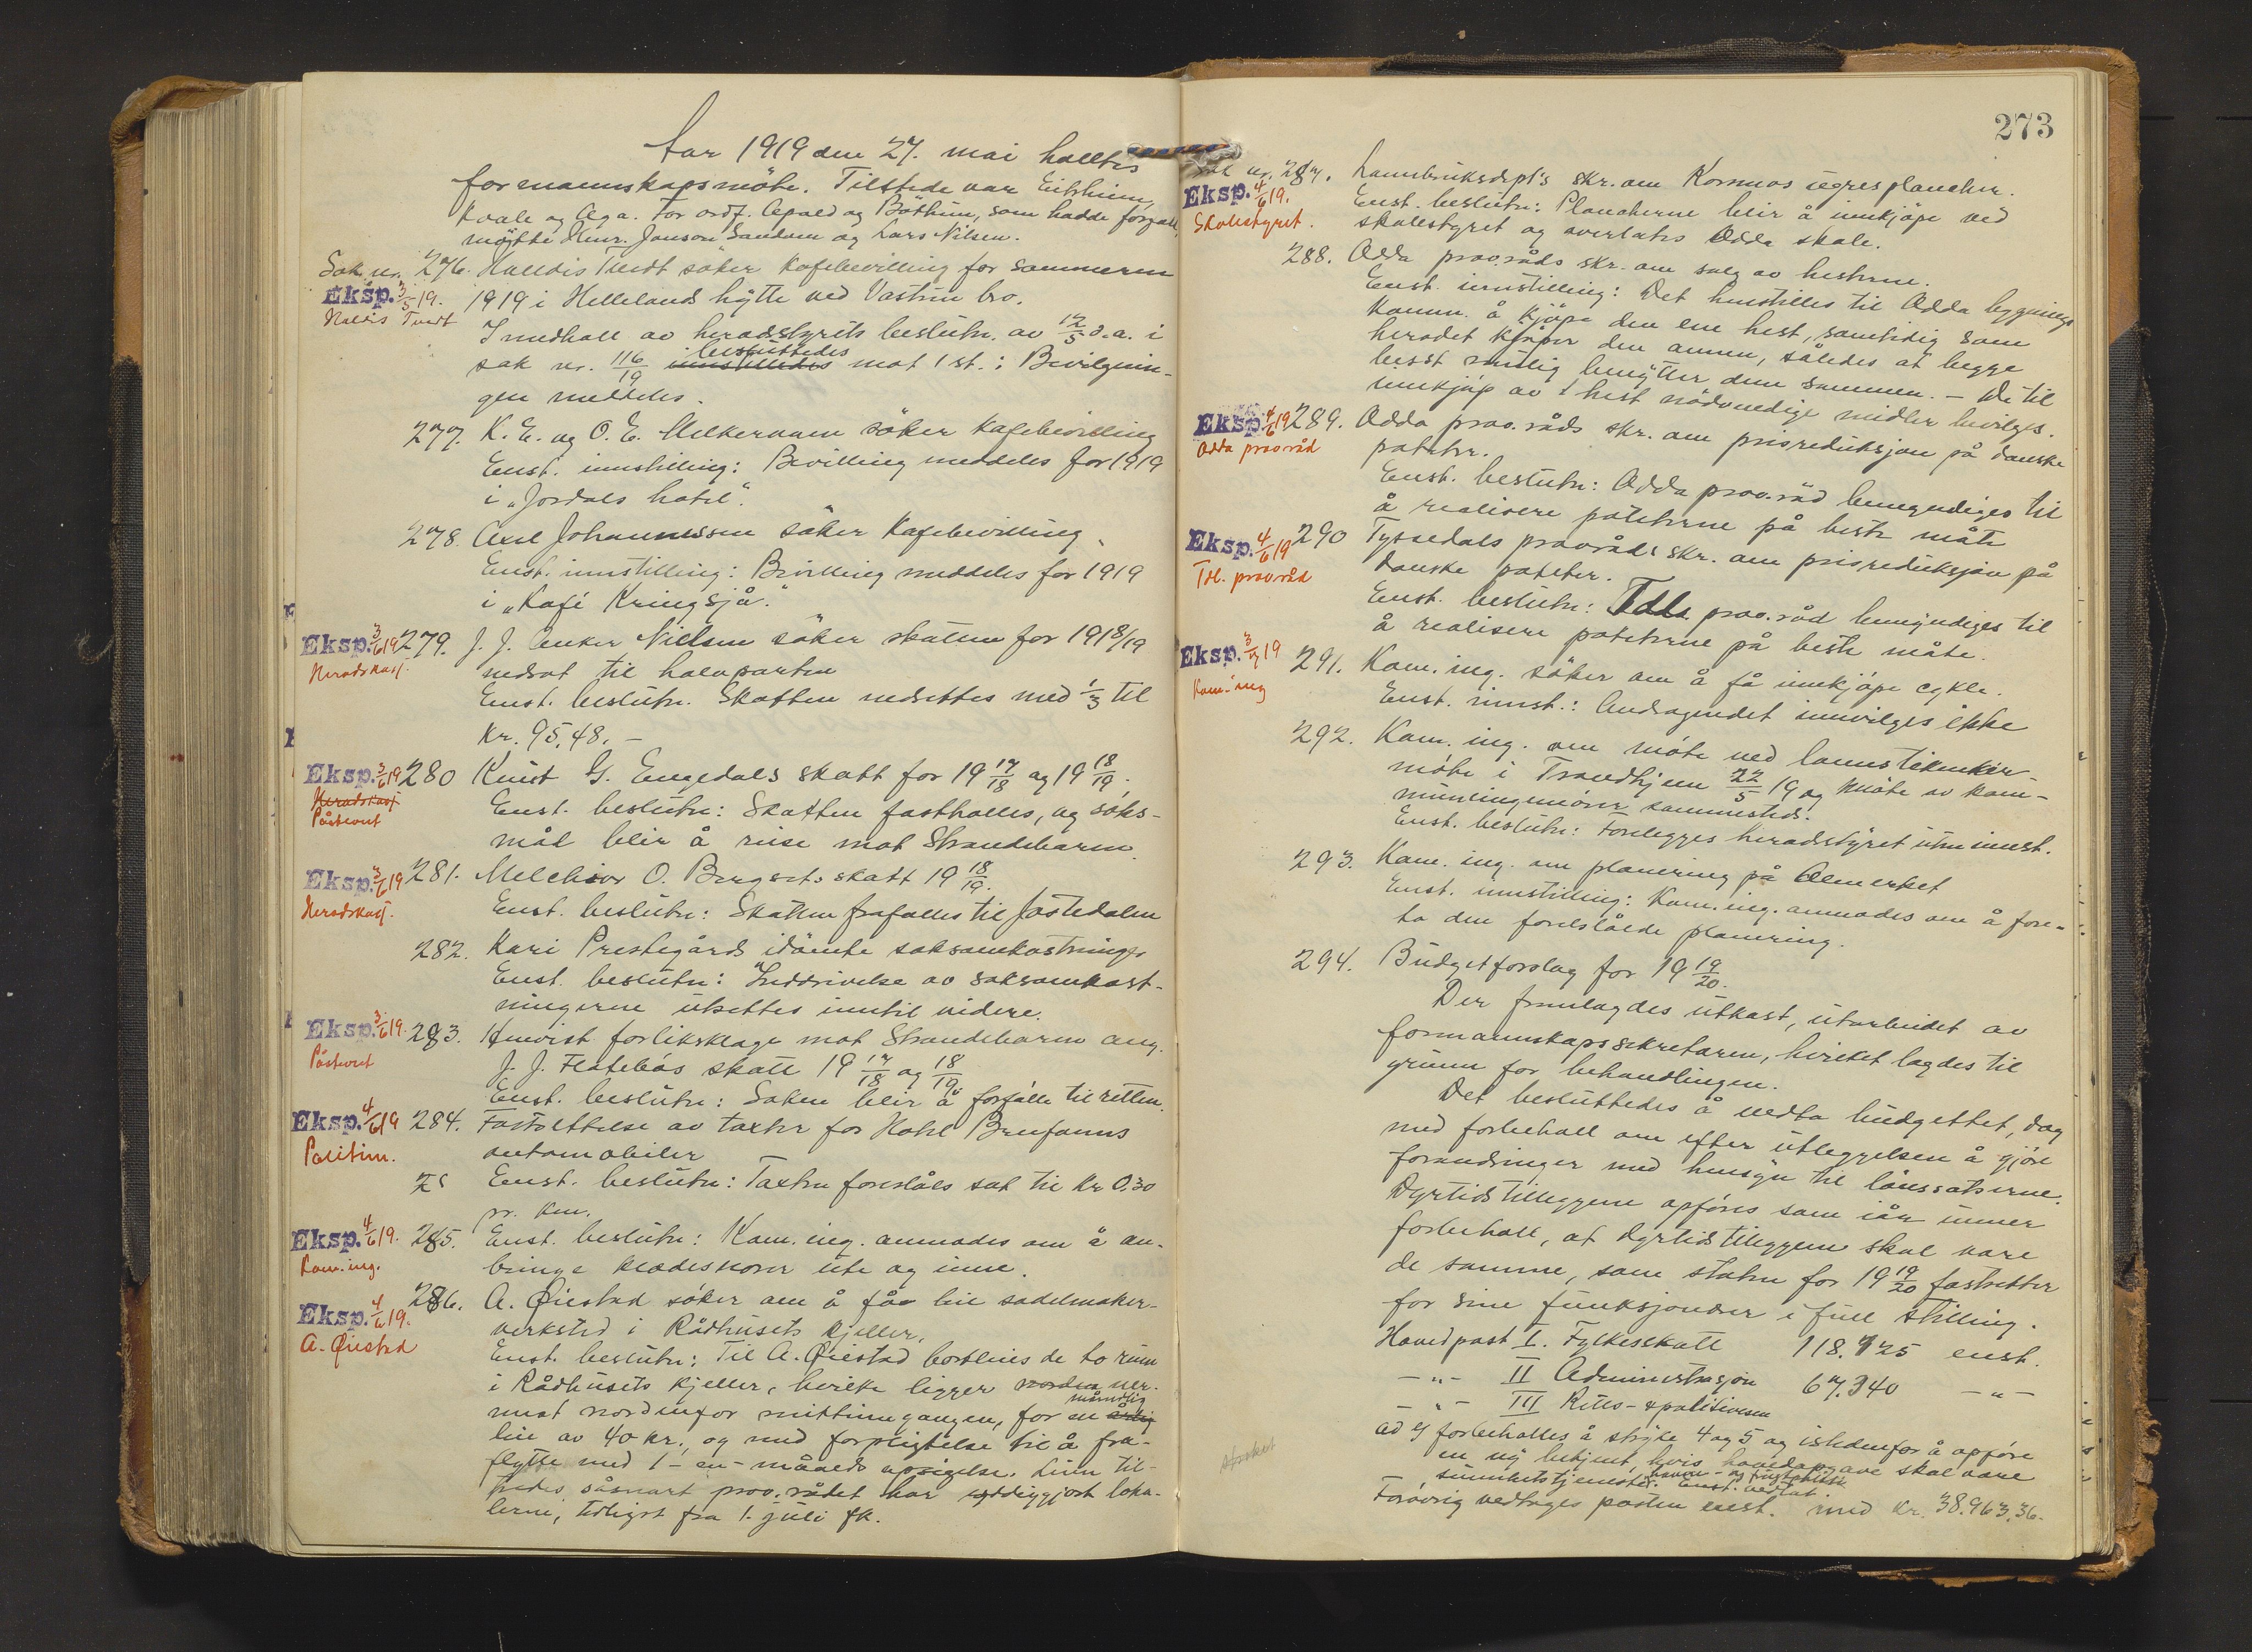 Aar 1919 den 27. mai holltes
formannskapsmöte. Tilstede var Eitrheim,
Kvale og Aga. For ordf. Apold og Böthun, som hadde forfall,
möjtte Hmr. Jonson Sandven og Lars Nilsen.
Sak nr. 276. Halldis Tvedt söker kafebevilling for sommeren
Eksp. 3/5 19.
Haldis Tvedt
1919 i Hellelands hytte ved Vastun bro.
I medholl av heradstyrets beslutn. av 12/5 d.a. i
besluttedes
sak nr. 116/19 innstilledes mot 1 st.: Bevilgnin-
gen meddeles.
277. K. E. og O. E. Melkeraaen söker kafebevilling
Enst. innstilling: Bevilling meddeles for 1919
i "Jordals hotel".
278. Axel Johannessen söker kafebevilling
Enst. innstilling: Bevilling meddeles for 1919
i "Kafé Kringsjå."
Eksp. 3/6 19 279. J. J. Anker Nielsen söker skatten for 1918/19
Heradskass.
nedsat til halvparten
Enst. beslutn. Skatten nedsettes med 1/3 til
Kr. 95,48. –
Eksp. 3/6 19 280 Knut G. Engedals skatt for 19 17/18 og 19 18/19.
Heradskass.
Påstevnt
Enst. beslutn: Skatten fastholles, og söks-
mål blir å reise mot Strandebarm.
Eksp. 3/6 19 281. Melchior O. Bergsets skatt 19 18/19.
Heradskass.
Enst. beslutn: Skatten frafalles til Jostedalen
282. Kari Prestegårds idömte saksomkostninger
Enst. beslutn: Inddrivelse av saksomkost-
ningerne utsettes inntil videre.
Eksp. 3/6 19. 283. Henvist forliksklage mot Strandebarm ang.
Påstevnt
J. J. Flatebös skatt 19 17/18 og 18/19.
Enst. beslutn: Saken blir å forfölle til retten.
Eksp. 4/6 19 284. Fastsettelse av taxter for Hotel Breifonns
Politim.
automobiler
Enst. beslutn: Taxten foreslåes sat til kr 0.30
pr. km.
Eksp. 4/6 19. 285. Enst. beslutn: Kom. ing. anmodes om å an-
Kom. ing.
bringe klædesnorer ute og inne.
286. A. Øiestad söker om å få leie sadelmaker-
Eksp. 4/6 19.
A. Øiestad
verksted i Rådhusets kjeller.
Enst. beslutn: Til A. Øiestad bortleies de to rum
i Rådhusets kjeller, hvilke ligger norden ner-
månedlig
mest nordenfor midtinngangen, for en årlig
leie av 40 kr., og med forpligtelse til å fra-
flytte med 1 - en - måneds opsigelse. Leien til-
tredes såsnart prov. rådet har ryddiggjort loka-
lerne, tidligst fra 1. juli fk.
273
Sak nr. 287. Lannbruksdept's skr. om Korsmos ugresplancher.
Eksp. 4/6 19.
Skolestyret.
Enst. beslutn: Plancherne blir å innkjöpe ved
skolestyret og overlates Odda skole.
288. Odda prov.råds skr. om salg av hesterne.
Enst. innstilling: Det henstilles til Odda bygnings
komm. å kjöpe den ene hest, samtidig som
heradet kjöper den annen, således at begge
hesst mulig benytter dem sammen. – De til
innkjöp av 1 hest nödvendige midler bevilges.
Eksp. 4/6 19 289. Odda prov. råds skr. om prisreduksjon på danske
Odda provråd
poteter.
Enst. beslutn: Odda prov.råd bemyndiges til
å realisere poteterne på beste måte
Eksp. 4/6 19 290 Tyssedals provråds skr. om prisreduksjon på
Tdl. provråd
danske poteter.
Enst. beslutn: Tdls. prov.råd bemyndiges til
å realisere poteterne på beste måte.
Eksp. 3/7 19 291. Kom. ing. söker om å få innkjöpe cykle.
Kom. ing
Enst. innst.: Andragendet innvilges ikke
292. Kom. ing. om möte ved lannstekniker-
möte i Trondhjem 22/5 19 og möte av kom-
muningeniörer sammesteds.
Enst. beslutn: Forelegges heradstyret uten innst.
293. Kom. ing. om planering på Almerket
Enst. innstilling: Kom. ing. anmodes om å fore-
ta den foreslåede planering.
294. Budgetforslag for 19 19/20.
Der fremlagdes utkast, utarbeidet av
formannskapssekretæren, hvilket lagdes til
grunn for behandlingen.
Det besluttedes å vedta budgettet, dog
med forbeholl om efter utleggelsen å gjöre
forandringer med hensyn til lönssatserne.
Dyrtidstilleggene opföres som iår unner
forbeholl, at dyrtidstilleggene skal være
de samme, som staten for 19 19/20 fastsetter
for sine funksjonærer i full stilling.
Hovedpost I. Fylkesskatt 118.725 enst.
– " – II Administrasjon 67.340 – " –
– " – III Retts- & politivesen
ad 4 forbeholles å stryke 4 og 5 og istedenfor å opföre
en ny betjent, hvis hovedopgave skal være
sunnhetstjeneste. Enst. vedtat.
Forövrig vedtages posten enst. med kr. 38.963,36.